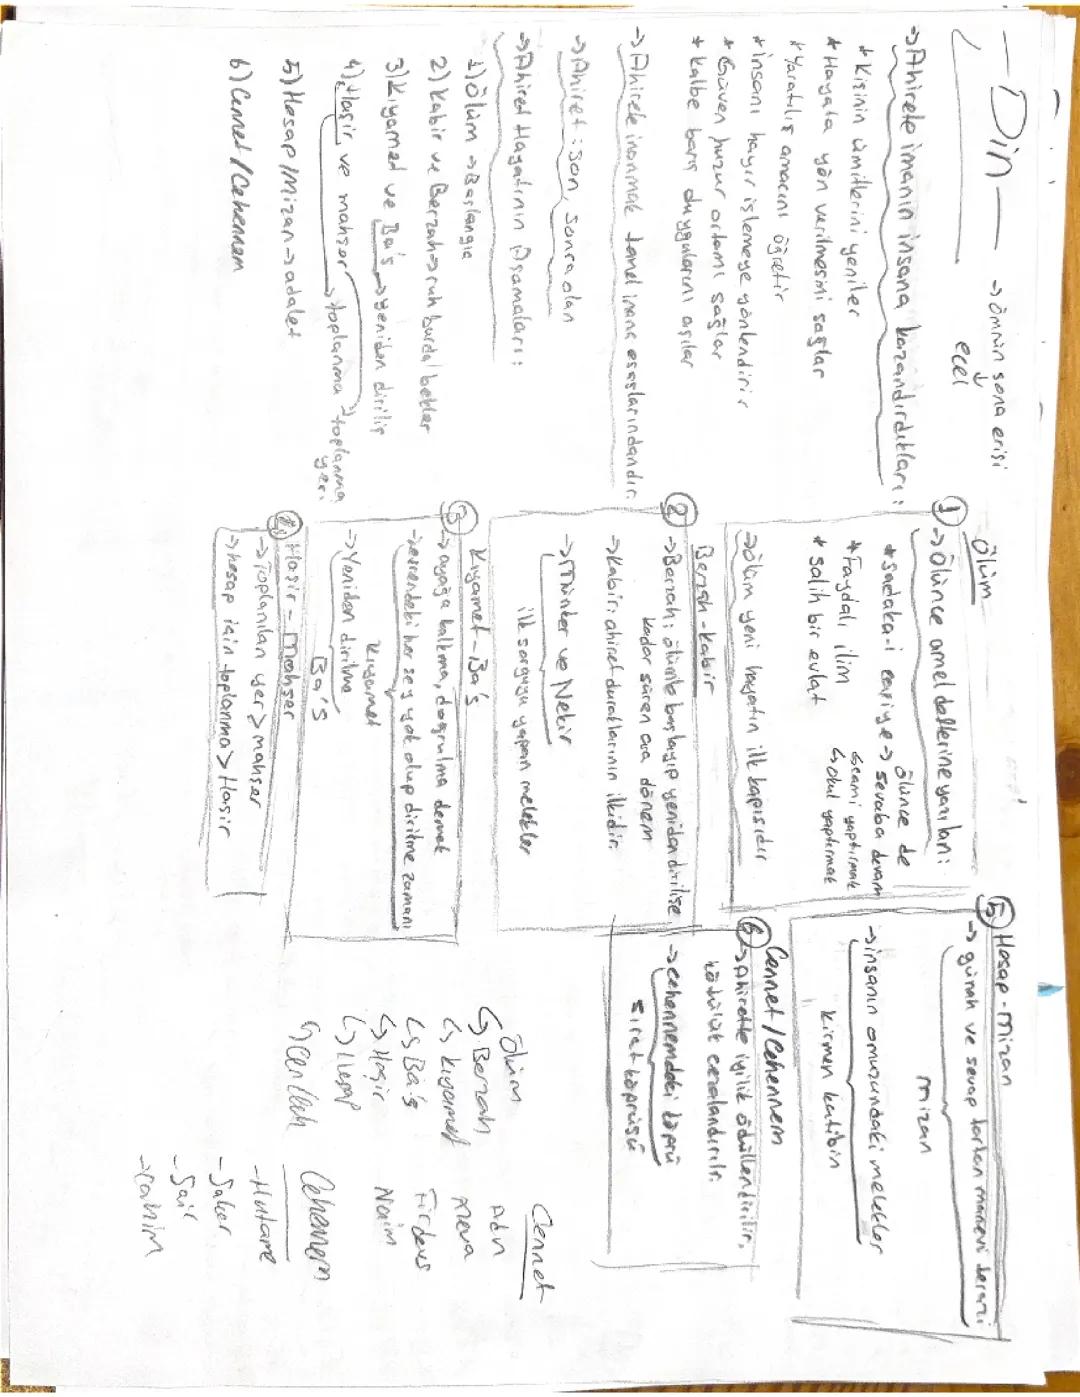 - Din -
→ ömrün sona erişi
↓
ecel
→Ahirete imanın insana kazandırdıkları:
* Kişinin ümitlerini yeniler
* Hayata yön verilmesini sağlar
* Yaratılış amacını öğretir
* insanı hayır işlemeye yönlendirir
* Güven huzur ortamı sağlar
* kalbe barış duygularını aşılar
→Ahirete inanmak temel inanç esaslarındandır.
→Ahiret: son, sonra olan
→Ahiret Hayatının Aşamaları:
1) ölüm → Başlangıç
2) Kabir ve Berzah→ruh burda bekler
3) Kıyamed ve Ba's →yeniden diriliş
4) Haşir ve mahşer →toplanma yeri
→toplanma
5) Hesap/Mizan→adalet
6) Cennet/Cehennem
Ölüm
1 →Ölünce amel defterine yazılan:
* sadaka-i cariye→ ölünce de sevaba devam
* Faydalı ilim
↳cami yaptırmak
* salih bir evlat
↳okul yaptırmak
→ölüm yeni hayatın ilk kapısıdır
Berzah-kabir
2 →Berzah: ölümle başlayıp yeniden dirilişe
kadar süren ara dönem
→Kabir: ahiret duraklarının ilkidir.
→münker ve Nekir
ilk sorguyu yapan melekler
3 Kıyamet-Ba's
→ayağa kalkma, doğrulma demek
→evrendeki her şey yok olup dirilme zamanı
Kıyamet
→Yeniden dirilme
Ba's
4 Haşir-Mahşer
→Toplanılan yer> mahşer
→hesap için toplanma> Haşir
5 Hesap-mizan
→günah ve sevap tartan manevi terazi
mizan
→insanın omuzundaki melekler
kirmen katibin
Cennet/Cehennem
6 →Ahirette iyilik ödüllendirilir,
kötülük cezalandırılır.
→cehennemdeki köprü
sırat köprüsü
Ölüm
↳ Berzah
↳ kıyamet
↳ Ba's
↳ Haşir
↳ Hesap
↳ Cen/ceh
Cennet
Adn
meva
Firdevs
Naim
Cehennem
-Hutame
-Saker
-Sair
-cahim